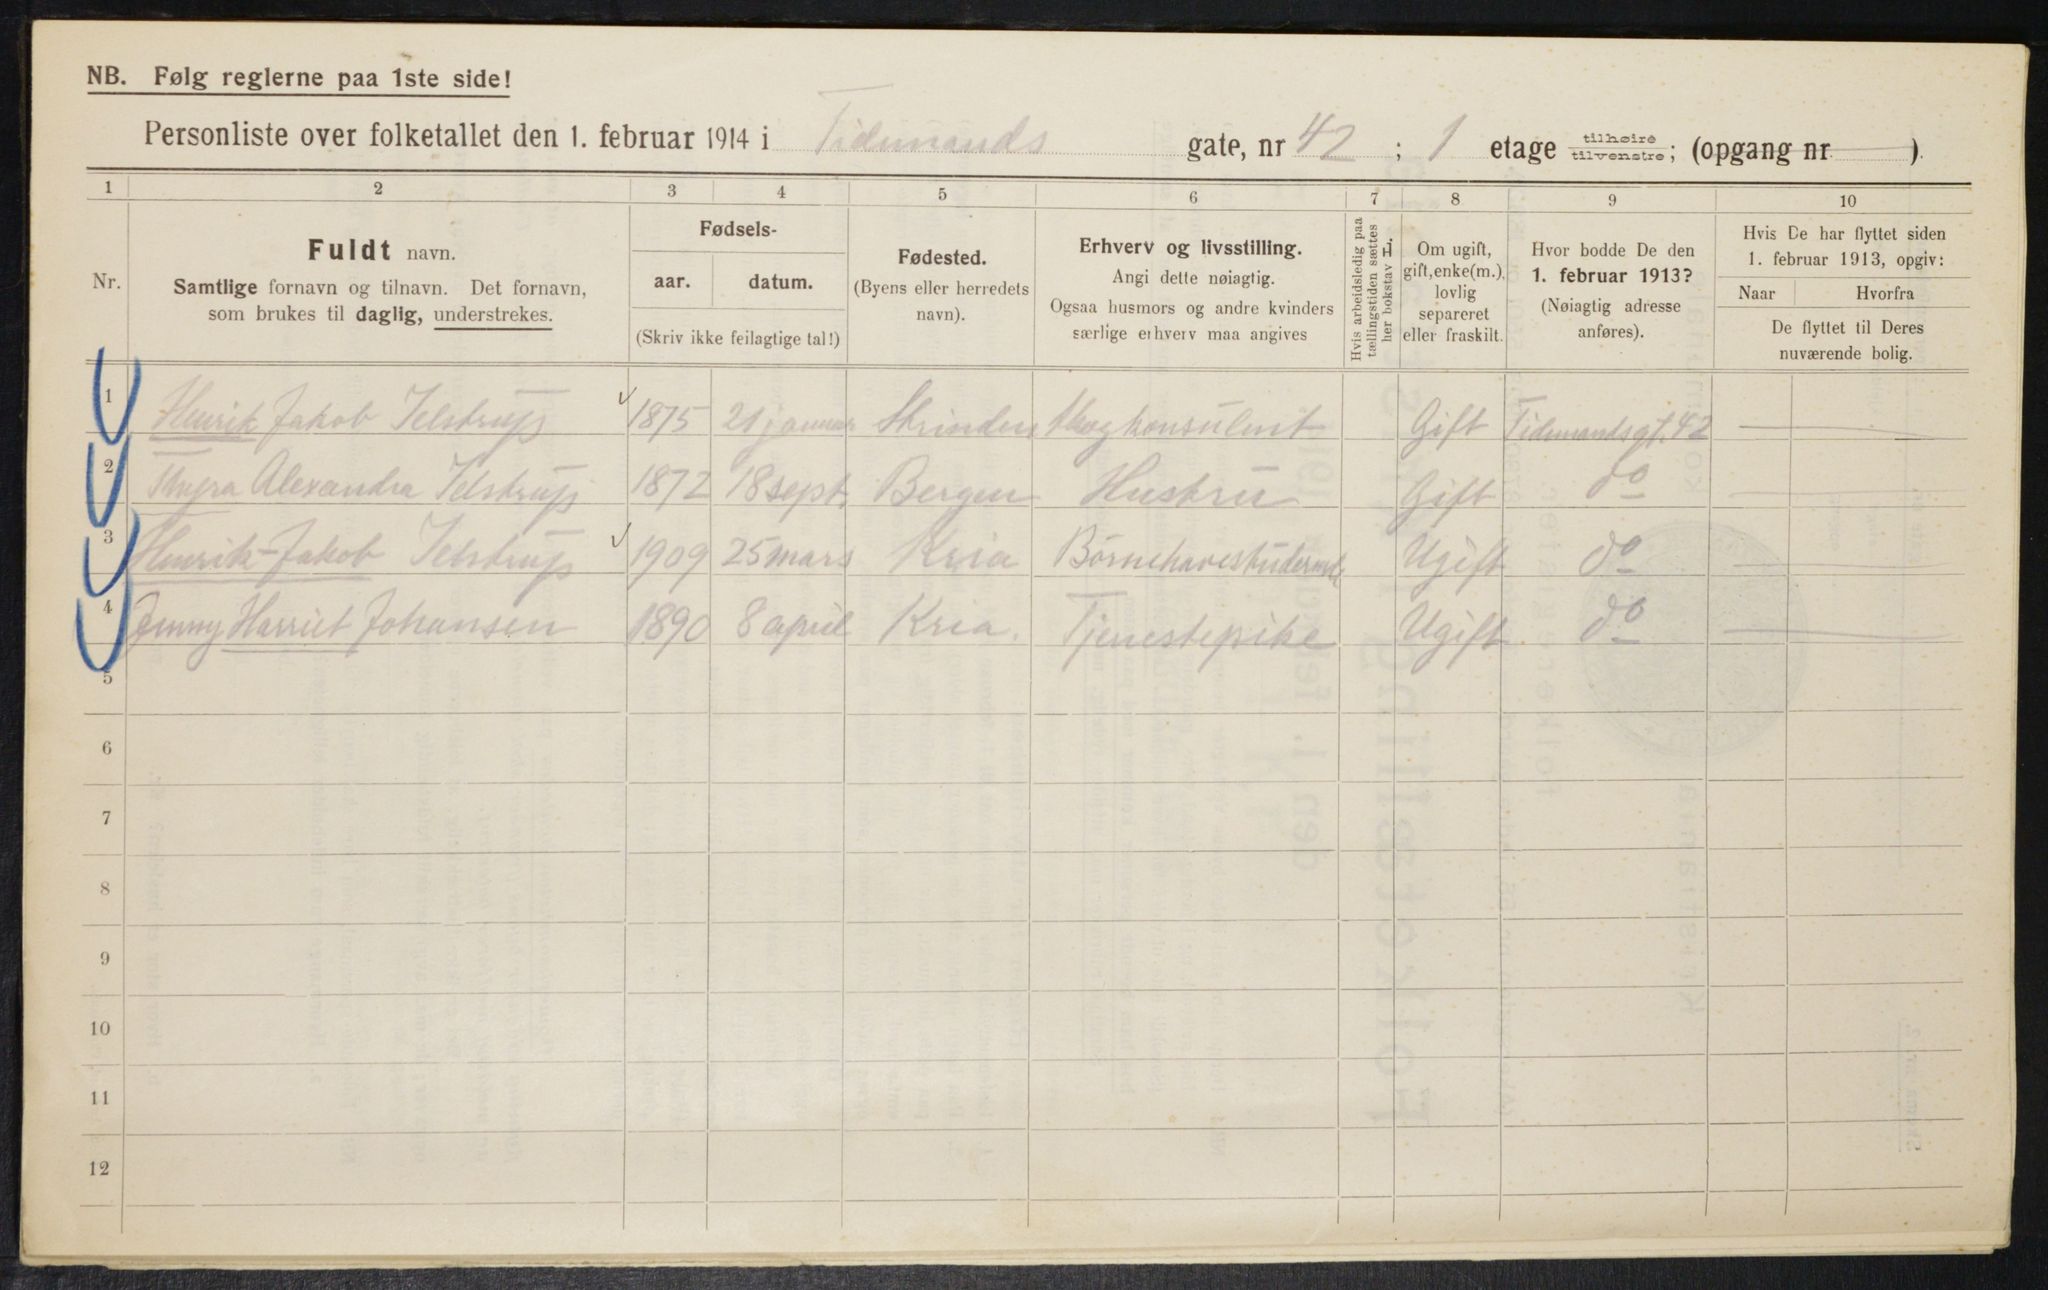 NB. Følg reglerne paa 1ste side!
Personliste over folketallet den 1. februar 1914 i Tidemands gate, nr 42 ; 1 etage tilhøire tilvenstre; (opgang nr )
1 2 3 4 5 6 7 8 9 10
Nr.
Fuldt navn.
Samtlige fornavn og tilnavn. Det fornavn,
som brukes til daglig, understrekes.
Fødsels-
aar. datum.
(Skriv ikke feilagtige tal!)
Fødested.
(Byens eller herredets
navn).
Erhverv og livsstilling.
Angi dette nøiagtig.
Ogsaa husmors og andre kvinders
særlige erhverv maa angives
Hvis arbeidsledig paa
tællingstiden sættes
her bokstav L.
Om ugift,
gift, enke(m.),
lovlig
separeret
eller fraskilt.
Hvor bodde De den
1. februar 1913?
(Nøiagtig adresse
anføres).
Hvis De har flyttet siden
1. februar 1913, opgiv:
Naar Hvorfra
De flyttet til Deres
nuværende bolig.
1 Henrik Jakob Jelstrup 1875 21 januar Strinden Skogkonsulent Gift Tidemandsgt. 42
2 Thyra Alexandra Jelstrup 1872 18 sept. Bergen Hustru Gift do
3 Henrik-Jakob Jelstrup 1909 25 mars Kria Børnehavestuderende Ugift do
4 Jenny Harriet Johansen 1890 8 april Kria. Tjenestepike Ugift do
5
6
7
8
9
10
11
12